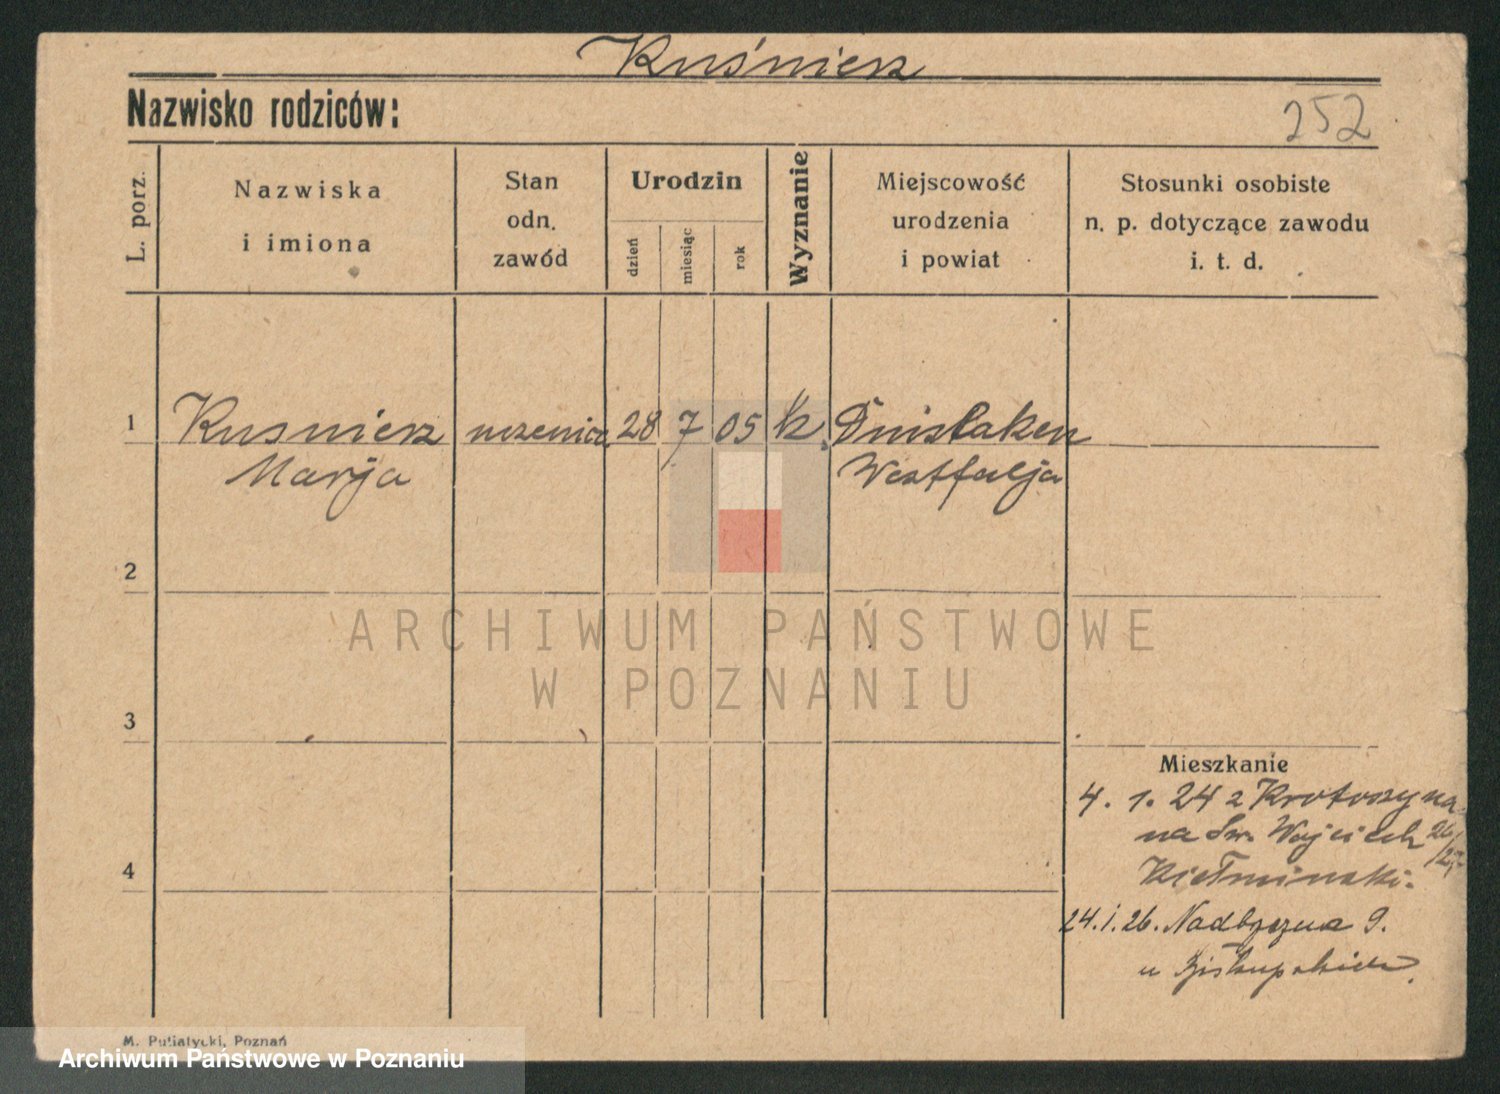 Kuśnierz
Nazwisko rodziców:
252
L. porz.
Nazwiska
i imiona
Stan
odn.
zawód
Urodzin
dzień
miesiąc
rok
Wyznanie
Miejscowość
urodzenia
i powiat
Stosunki osobiste
n. p. dotyczące zawodu
i. t. d.
1
Kusnierz
Marja
uczenica
28
7
05
k.
Dinslaken
Westfalja
2
3
4
Mieszkanie
4. 1. 24 z Krotoszyna
na Św. Wojciech 26/27
24.1.26. Nadbrzeżna 9.
u
M. Putiatycki, Poznań
ARCHIWUM PAŃSTWOWE
W POZNANIU
Archiwum Państwowe w Poznaniu